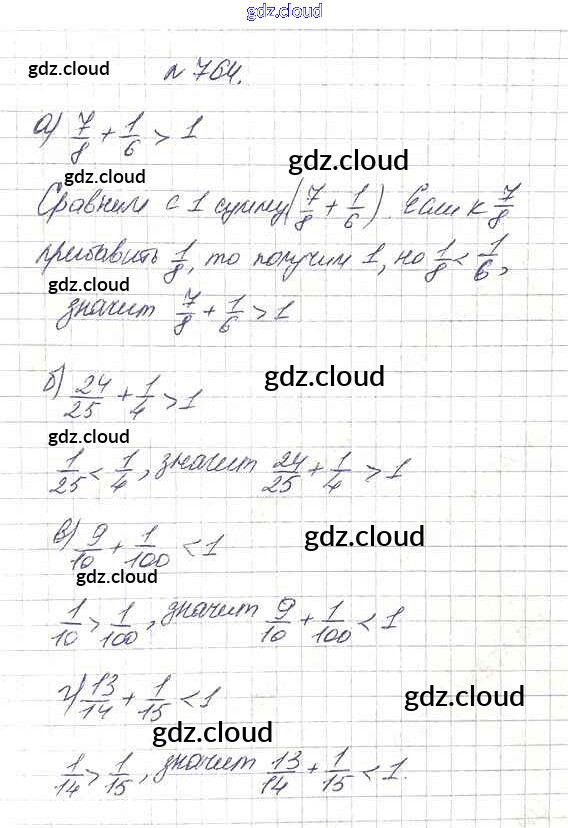 gdz.cloud
gdz.cloud
№ 764.
а) 7/8 + 1/6 > 1
gdz.cloud
gdz.cloud
Сравним с 1 сумму (7/8 + 1/6). Если к 7/8
прибавить 1/8, то получим 1, но 1/8 < 1/6,
gdz.cloud
значит 7/8 + 1/6 > 1
б) 24/25 + 1/4 > 1
gdz.cloud
gdz.cloud
1/25 < 1/4, значит 24/25 + 1/4 > 1
в) 9/10 + 1/100 < 1
gdz.cloud
gdz.cloud
1/10 > 1/100, значит 9/10 + 1/100 < 1
г) 13/14 + 1/15 < 1
gdz.cloud
gdz.cloud
1/14 > 1/15, значит 13/14 + 1/15 < 1.